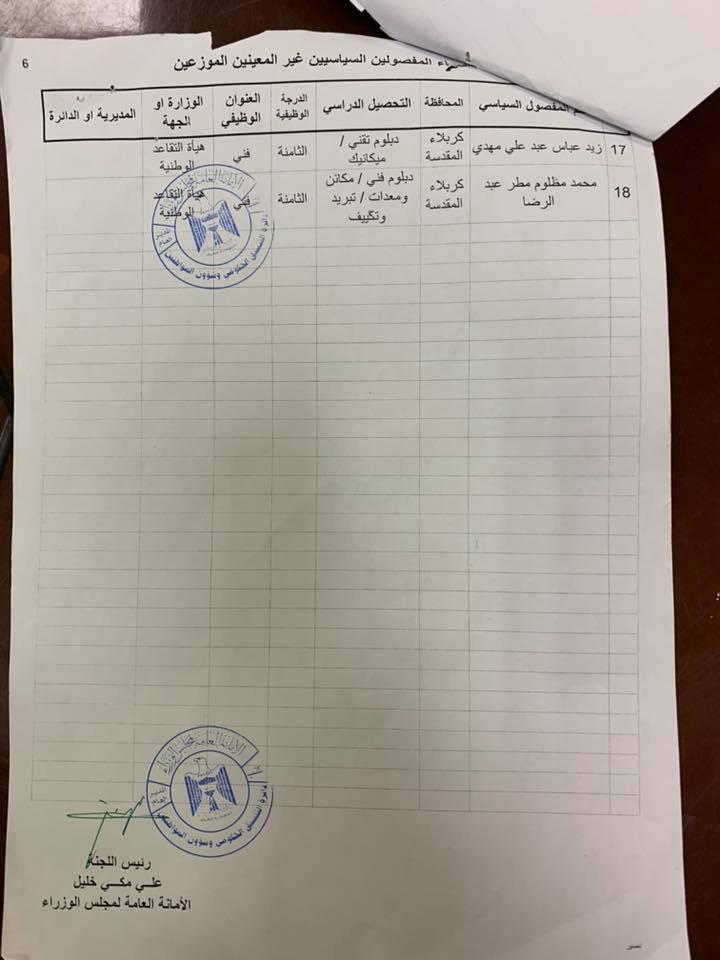 6
المفصولين السياسيين غير المعينين الموزعين
المفصول السياسي
المحافظة
التحصيل الدراسي
الدرجة
الوظيفية
العنوان
الوظيفي
الوزارة او
الجهة
المديرية او الدائرة
17
زيد عباس عبد علي مهدي
كربلاء
المقدسة
دبلوم تقني /
ميكانيك
الثامنة
فني
هيأة التقاعد
الوطنية
18
محمد مظلوم مطر عبد
الرضا
كربلاء
المقدسة
دبلوم فني / مكائن
ومعدات / تبريد
وتكييف
الثامنة
فني
هيأة التقاعد
الوطنية
الأمانة العامة لمجلس الوزراء
دائرة التنسيق الحكومي وشؤون المواطنين
الأمانة العامة لمجلس الوزراء
دائرة التنسيق الحكومي وشؤون المواطنين
رئيس اللجنة
علي مكي خليل
الأمانة العامة لمجلس الوزراء